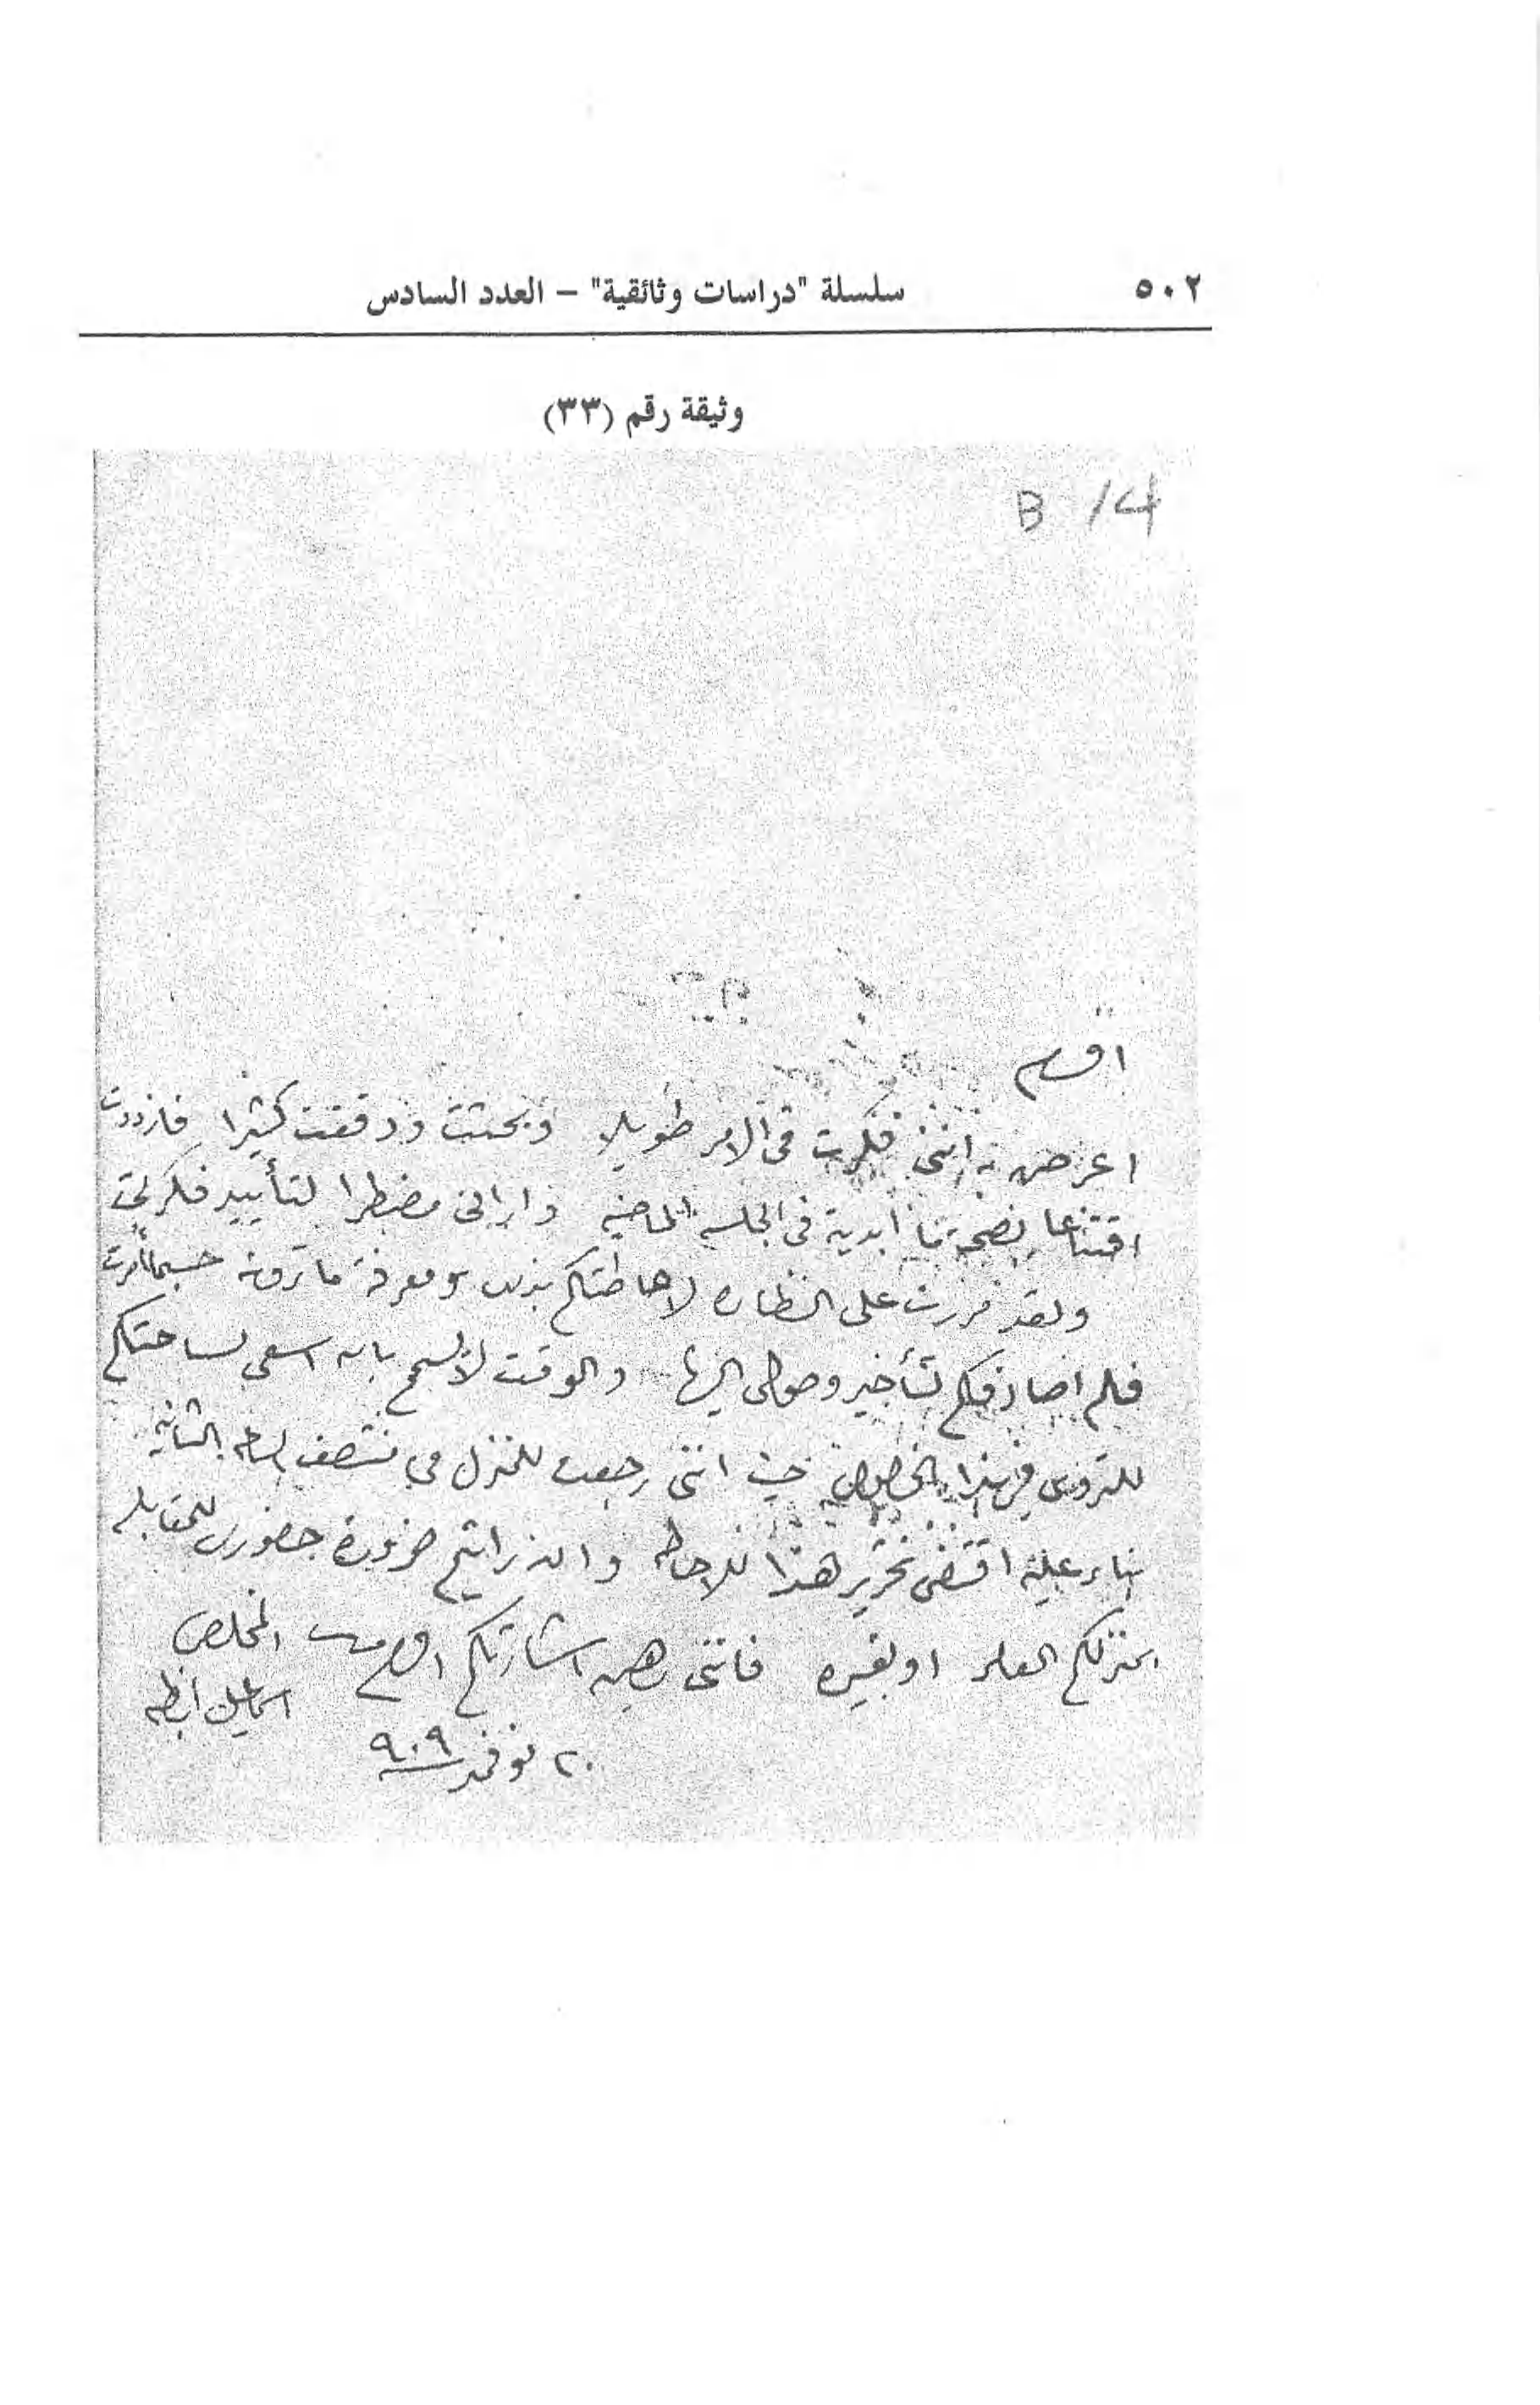 ٥٠٢
سلسلة "دراسات وثائقية" – العدد السادس
وثيقة رقم (٣٣)
B 14
افندم
اعرض انني فكرت في الامر طويلا وبحثت ودققت كثيرا فازددت
اقتناعا بصحة ما ابديته في الجلسه الماضيه وارانى مضطرا لتأييد فكرتي
ولقد مررت على النظاره لاحاطتكم بذلك ومعرفة ما ترونه حسبما أمرت
فلم اصادفكم لتأخير وصولى اليها والوقت لا يسمح بان اسعى لساحتكم
للتروى في هذا الخصوص حيث اننى رجعت للمنزل في منتصف الساعه الثانيه
بناء عليه اقتضى تحرير هذا للاحاطه وان رايتم ضرورة حضورى للمقابله
بمنزلكم العامر او بغيره فاننى رهين اشارتكم افندم المخلص
اسماعيل اباظه
٢٠ نوفمبر ٩٠٩